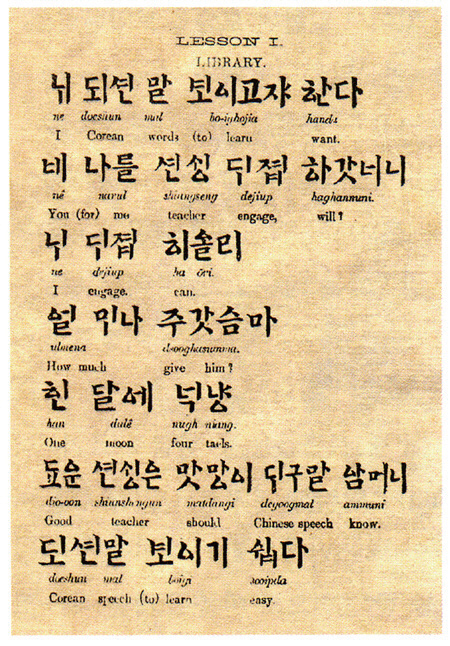 LESSON I.
LIBRARY.
ᄂᆡ 되션 말 보이고쟈 ᄒᆞᆫ다
ne doeshun mal bo-ighojia handa
I Corean words (to) learn want.
네 나를 션ᄉᆡᆼ ᄃᆡ졉 하갓너니
nê narul shiangseng dejiup haghannuni.
You (for) me teacher engage, will?
ᄂᆡ ᄃᆡ졉 ᄒᆞ올리
ne dejiup ha ōri.
I engage. can.
얼 ᄆᆡ나 주갓슴마
ulmena dsooghasumma.
How much give him?
ᄒᆞᆫ 달에 넉냥
han dalê nugh niang.
One moon four taels.
됴운 션ᄉᆡᆼ은 맛당이 ᄃᆡ구말 암머니
dio-oon shianshengun matdangi degoogmal ammuni
Good teacher should Chinese speech know.
되션말 보이기 쉽다
doeshun mal boigi sooipda
Corean speech (to) learn easy.